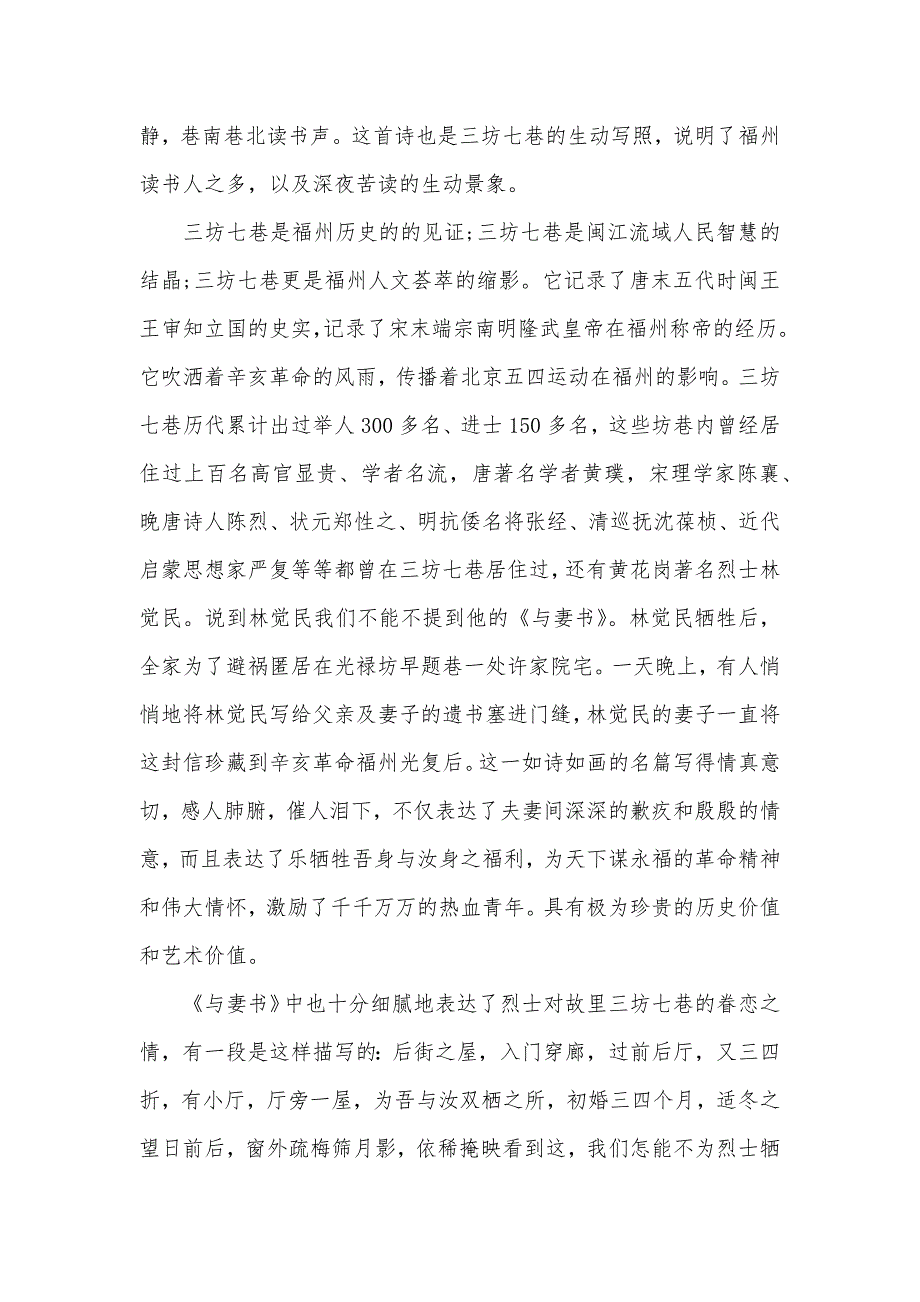 静，巷南巷北读书声。这首诗也是三坊七巷的生动写照，说明了福州
读书人之多，以及深夜苦读的生动景象。
三坊七巷是福州历史的的见证;三坊七巷是闽江流域人民智慧的
结晶;三坊七巷更是福州人文荟萃的缩影。它记录了唐末五代时闽王
王审知立国的史实,记录了宋末端宗南明隆武皇帝在福州称帝的经历。
它吹洒着辛亥革命的风雨，传播着北京五四运动在福州的影响。三坊
七巷历代累计出过举人 300 多名、进士 150 多名，这些坊巷内曾经居
住过上百名高官显贵、学者名流，唐著名学者黄璞，宋理学家陈襄、
晚唐诗人陈烈、状元郑性之、明抗倭名将张经、清巡抚沈葆桢、近代
启蒙思想家严复等等都曾在三坊七巷居住过，还有黄花岗著名烈士林
觉民。说到林觉民我们不能不提到他的《与妻书》。林觉民牺牲后，
全家为了避祸匿居在光禄坊早题巷一处许家院宅。一天晚上，有人悄
悄地将林觉民写给父亲及妻子的遗书塞进门缝，林觉民的妻子一直将
这封信珍藏到辛亥革命福州光复后。这一如诗如画的名篇写得情真意
切，感人肺腑，催人泪下，不仅表达了夫妻间深深的歉疚和殷殷的情
意，而且表达了乐牺牲吾身与汝身之福利，为天下谋永福的革命精神
和伟大情怀，激励了千千万万的热血青年。具有极为珍贵的历史价值
和艺术价值。
《与妻书》中也十分细腻地表达了烈士对故里三坊七巷的眷恋之
情，有一段是这样描写的：后街之屋，入门穿廊，过前后厅，又三四
折，有小厅，厅旁一屋，为吾与汝双栖之所，初婚三四个月，适冬之
望日前后，窗外疏梅筛月影，依稀掩映看到这，我们怎能不为烈士牺